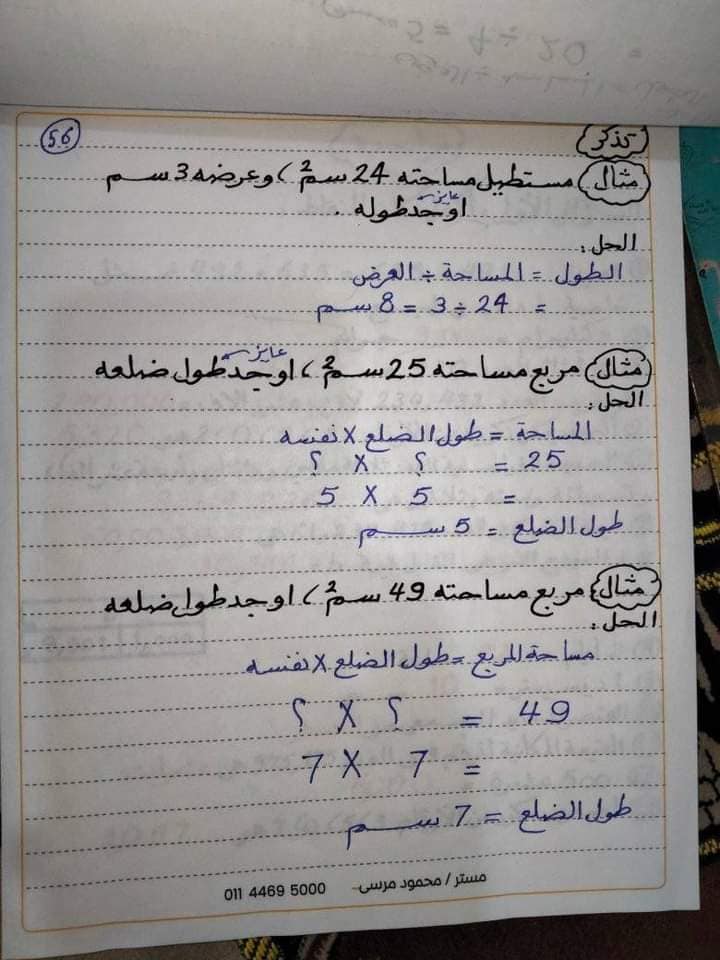 20 ÷ 4 = 5
56
تذكر
مثال مستطيل مساحته 24 سم² ، وعرضه 3 سم
عايز
اوجد طوله .
الحل :
الطول = المساحة ÷ العرض
= 24 ÷ 3 = 8 سم
عايز
مثال مربع مساحته 25 سم² ، اوجد طول ضلعه
الحل :
المساحة = طول الضلع X نفسه
25 = ؟ X ؟
= 5 X 5
طول الضلع = 5 سم
مثال مربع مساحته 49 سم² ، اوجد طول ضلعه
الحل :
مساحة المربع = طول الضلع X نفسه
49 = ؟ X ؟
= 7 X 7
طول الضلع = 7 سم
مستر / محمود مرسى 011 4469 5000